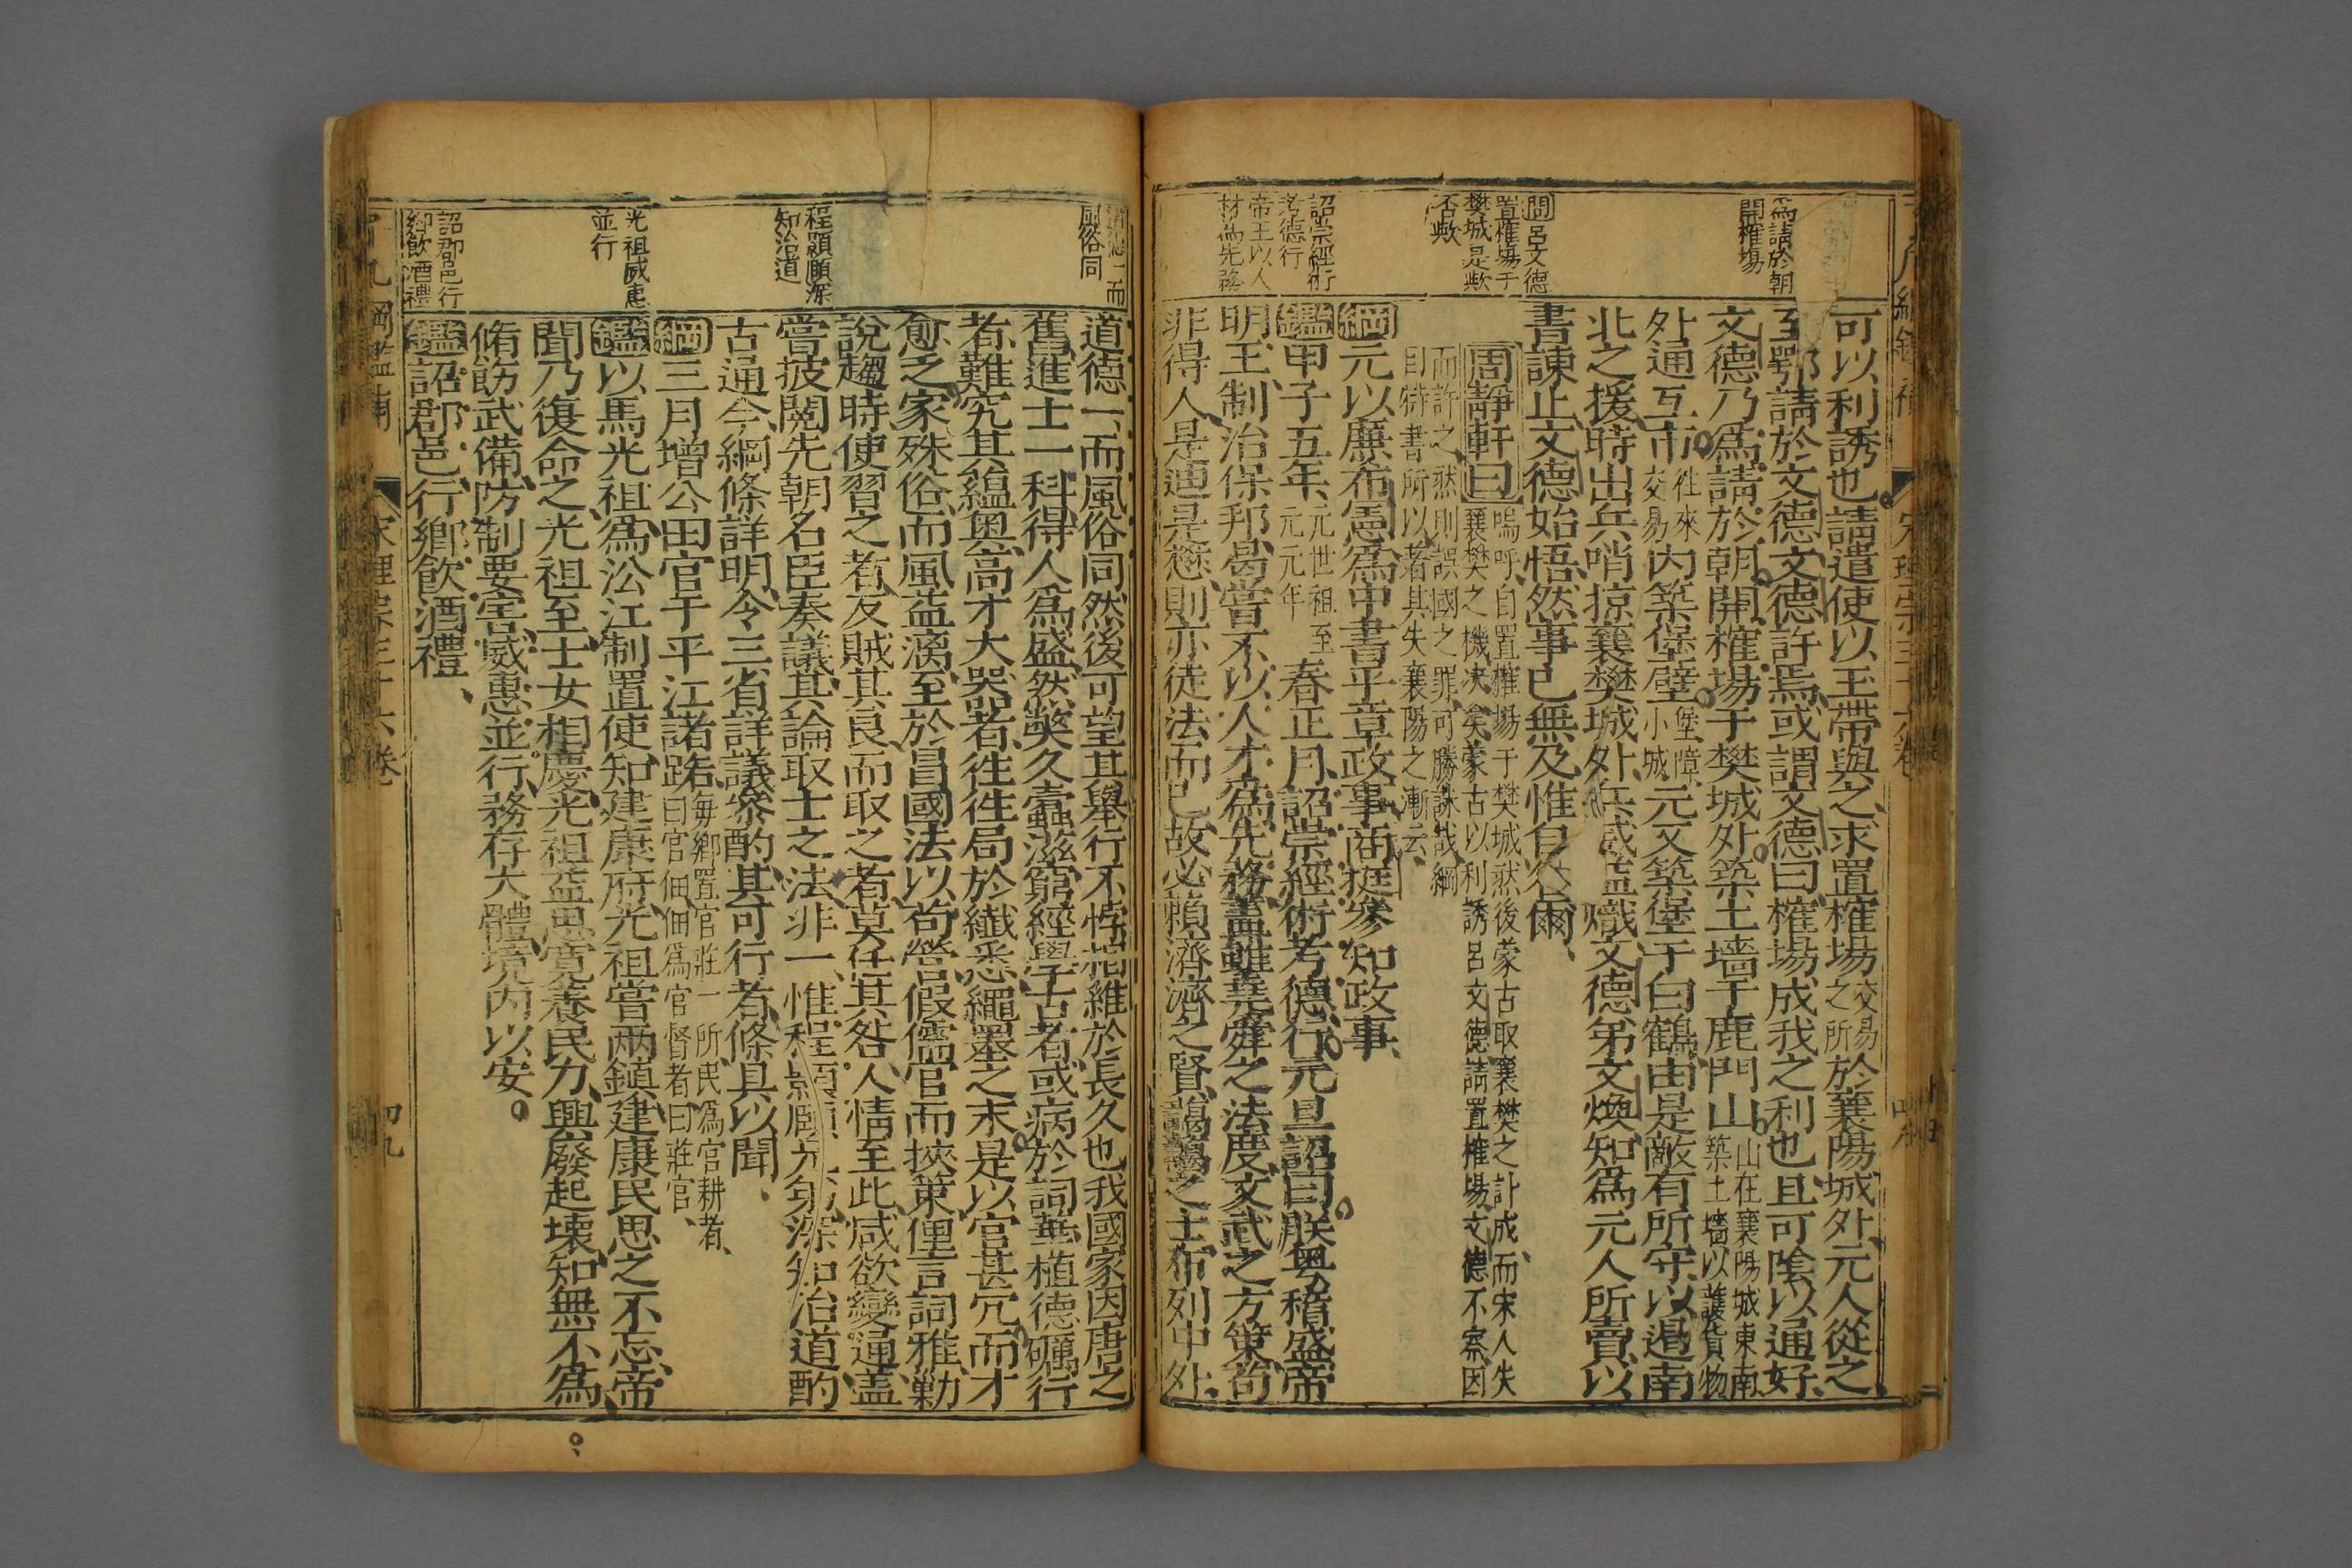 爲請於朝
開榷場
問呂文德
置榷場于
樊城是歟
否歟
詔崇經術
考德行
帝王以人
材爲先務
可以利誘也請遣使以玉帶與之求置榷場交易之所於襄陽城外元人從之
至鄂請於文德文德許焉或謂文德曰榷場成我之利也且可陰以通好
文德乃爲請於朝開榷場于樊城外築土墻于鹿門山山在襄陽城東南築土墻以護貨物
外通互市徃來交易内築堡壁堡障小城元又築堡于白鶴由是敵有所守以遏南
北之援時出兵哨掠襄樊城外兵威益熾文德弟文煥知爲元人所賣以
書諫止文德始悟然事已無及惟自爾
周靜軒曰嗚呼自置榷場于樊城然後蒙古取襄樊之計成而宋人失
襄樊之機决矣蒙古以利誘呂文德請置榷場文德不察因
而許之然則誤國之罪可勝誅哉綱
目特書所以著其失襄陽之漸云
綱元以廉布憲爲中書平章政事商挺參知政事
鑑甲子五年元世祖至元元年春正月詔崇經術考德行元旦詔曰朕粤稽盛帝
明王制治保邦曷嘗不以人才爲先務蓋雖堯舜之法度文武之方策苟
非得人是迪是懋則亦徒法而已故必頼濟濟之賢藹藹之士布列中外
宋理宗三十六卷
道德一而
風俗同
程顥願深
知治道
光祖威惠
並行
詔郡邑行
鄉飲酒禮
道德一而風俗同然後可望其舉行不悖相維於長久也我國家因唐之
舊進士一科得人爲盛然獘久蠹滋窮經學古者或病於詞華植德礪行
者難究其緼奥高才大器者徃徃局於纎悉繩墨之末是以官甚冗而才
愈之家殊俗而風益漓至於冒國法以苟營假儒官而挾策俚言詞雅勦
說趨時使習之者反賊其良而取之者莫任其咎人情至此咸欲變通蓋
嘗披閱先朝名臣奏議其論取士之法非一惟程顥深知治道酌
古通今綱條詳明令三省詳議參酌其可行者條具以聞
綱三月増公田官于平江諸路毎鄉置官莊一所民爲官耕者曰官佃佃爲官督者曰莊官
鑑以馬光祖爲㳂江制置使知建康府光祖嘗兩鎮建康民思之不忘帝
聞乃復命之光祖至士女相慶光祖益思寬養民力興廢起壊知無不爲
脩飭武備防制要害威惠並行務存大體境内以安
鑑詔郡邑行鄉飲酒禮
宋理宗三十六卷
四九